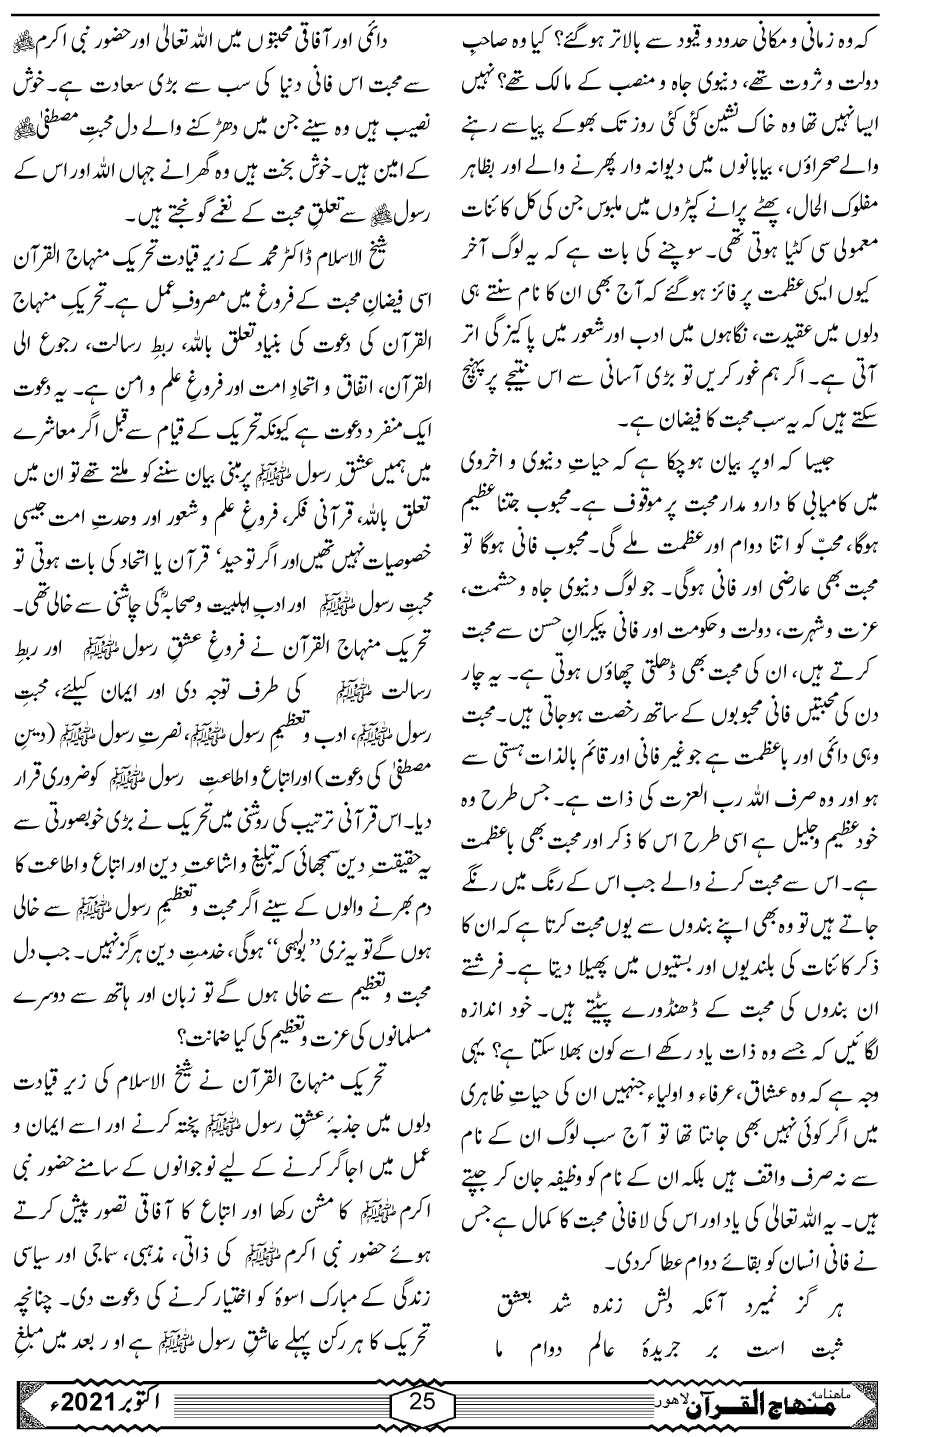 کہ وہ زمانی و مکانی حدود و قیود سے بالاتر ہوگئے؟ کیا وہ صاحبِ
دولت و ثروت تھے، دنیوی جاہ و منصب کے مالک تھے؟ نہیں
ایسا نہیں تھا وہ خاک نشین کئی کئی روز تک بھوکے پیاسے رہنے
والے صحراؤں، بیابانوں میں دیوانہ وار پھرنے والے اور بظاہر
مفلوک الحال، پھٹے پرانے کپڑوں میں ملبوس جن کی کل کائنات
معمولی سی کٹیا ہوتی تھی۔ سوچنے کی بات ہے کہ یہ لوگ آخر
کیوں ایسی عظمت پر فائز ہوگئے کہ آج بھی ان کا نام سنتے ہی
دلوں میں عقیدت، نگاہوں میں ادب اور شعور میں پاکیزگی اتر
آتی ہے۔ اگر ہم غور کریں تو بڑی آسانی سے اس نتیجے پر پہنچ
سکتے ہیں کہ یہ سب محبت کا فیضان ہے۔
جیسا کہ اوپر بیان ہوچکا ہے کہ حیاتِ دنیوی و اخروی
میں کامیابی کا دارو مدار محبت پر موقوف ہے۔ محبوب جتنا عظیم
ہوگا، محبّ کو اتنا دوام اور عظمت ملے گی۔ محبوب فانی ہوگا تو
محبت بھی عارضی اور فانی ہوگی۔ جو لوگ دنیوی جاہ و حشمت،
عزت و شہرت، دولت و حکومت اور فانی پیکرانِ حسن سے محبت
کرتے ہیں، ان کی محبت بھی ڈھلتی چھاؤں ہوتی ہے۔ یہ چار
دن کی محبتیں فانی محبوبوں کے ساتھ رخصت ہوجاتی ہیں۔ محبت
وہی دائمی اور باعظمت ہے جو غیر فانی اور قائم بالذات ہستی سے
ہو اور وہ صرف اللہ رب العزت کی ذات ہے۔ جس طرح وہ
خود عظیم و جلیل ہے اسی طرح اس کا ذکر اور محبت بھی باعظمت
ہے۔ اس سے محبت کرنے والے جب اس کے رنگ میں رنگے
جاتے ہیں تو وہ بھی اپنے بندوں سے یوں محبت کرتا ہے کہ ان کا
ذکر کائنات کی بلندیوں اور بستیوں میں پھیلا دیتا ہے۔ فرشتے
ان بندوں کی محبت کے ڈھنڈورے پیٹتے ہیں۔ خود اندازہ
لگائیں کہ جسے وہ ذات یاد رکھے اسے کون بھلا سکتا ہے؟ یہی
وجہ ہے کہ وہ عشاق، عرفاء و اولیاء جنہیں ان کی حیاتِ ظاہری
میں اگر کوئی نہیں بھی جانتا تھا تو آج سب لوگ ان کے نام
سے نہ صرف واقف ہیں بلکہ ان کے نام کو وظیفہ جان کر جپتے
ہیں۔ یہ اللہ تعالیٰ کی یاد اور اس کی لافانی محبت کا کمال ہے جس
نے فانی انسان کو بقائے دوام عطا کردی۔
ہر گز نمیرد آنکہ دلش زندہ شد بعشق
ثبت است بر جریدۂ عالم دوام ما
دائمی اور آفاقی محبتوں میں اللہ تعالیٰ اور حضور نبی اکرم ﷺ
سے محبت اس فانی دنیا کی سب سے بڑی سعادت ہے۔ خوش
نصیب ہیں وہ سینے جن میں دھڑکنے والے دل محبتِ مصطفیٰ ﷺ
کے امین ہیں۔ خوش بخت ہیں وہ گھرانے جہاں اللہ اور اس کے
رسول ﷺ سے تعلقِ محبت کے نغمے گونجتے ہیں۔
شیخ الاسلام ڈاکٹر محمد کے زیرِ قیادت تحریک منہاج القرآن
اسی فیضانِ محبت کے فروغ میں مصروفِ عمل ہے۔ تحریکِ منہاج
القرآن کی دعوت کی بنیاد تعلق باللہ، ربطِ رسالت، رجوع الی
القرآن، اتفاق و اتحادِ امت اور فروغِ علم و امن ہے۔ یہ دعوت
ایک منفرد دعوت ہے کیونکہ تحریک کے قیام سے قبل اگر معاشرے
میں ہمیں عشقِ رسول ﷺ پر مبنی بیان سننے کو ملتے تھے تو ان میں
تعلق باللہ، قرآنی فکر، فروغِ علم و شعور اور وحدتِ امت جیسی
خصوصیات نہیں تھیں اور اگر توحید‘ قرآن یا اتحاد کی بات ہوتی تو
محبتِ رسول ﷺ اور ادبِ اہلبیت و صحابہؓ کی چاشنی سے خالی تھی۔
تحریک منہاج القرآن نے فروغِ عشقِ رسول ﷺ اور ربطِ
رسالت ﷺ کی طرف توجہ دی اور ایمان کیلئے، محبتِ
رسول ﷺ، ادب و تعظیمِ رسول ﷺ، نصرتِ رسول ﷺ (دینِ
مصطفیٰ کی دعوت) اور اتباع و اطاعتِ رسول ﷺ کو ضروری قرار
دیا۔ اس قرآنی ترتیب کی روشنی میں تحریک نے بڑی خوبصورتی سے
یہ حقیقتِ دین سمجھائی کہ تبلیغ و اشاعتِ دین اور اتباع و اطاعت کا
دم بھرنے والوں کے سینے اگر محبت و تعظیمِ رسول ﷺ سے خالی
ہوں گے تو یہ نری ’’بولہبی‘‘ ہوگی، خدمتِ دین ہرگز نہیں۔ جب دل
محبت و تعظیم سے خالی ہوں گے تو زبان اور ہاتھ سے دوسرے
مسلمانوں کی عزت و تعظیم کی کیا ضمانت؟
تحریک منہاج القرآن نے شیخ الاسلام کی زیرِ قیادت
دلوں میں جذبۂ عشقِ رسول ﷺ پختہ کرنے اور اسے ایمان و
عمل میں اجاگر کرنے کے لیے نوجوانوں کے سامنے حضور نبی
اکرم ﷺ کا مشن رکھا اور اتباع کا آفاقی تصور پیش کرتے
ہوئے حضور نبی اکرم ﷺ کی ذاتی، مذہبی، سماجی اور سیاسی
زندگی کے مبارک اسوۂ کو اختیار کرنے کی دعوت دی۔ چنانچہ
تحریک کا ہر رکن پہلے عاشقِ رسول ﷺ ہے او ر بعد میں مبلغِ
ماہنامہ منہاج القرآن لاہور
25
اکتوبر 2021ء